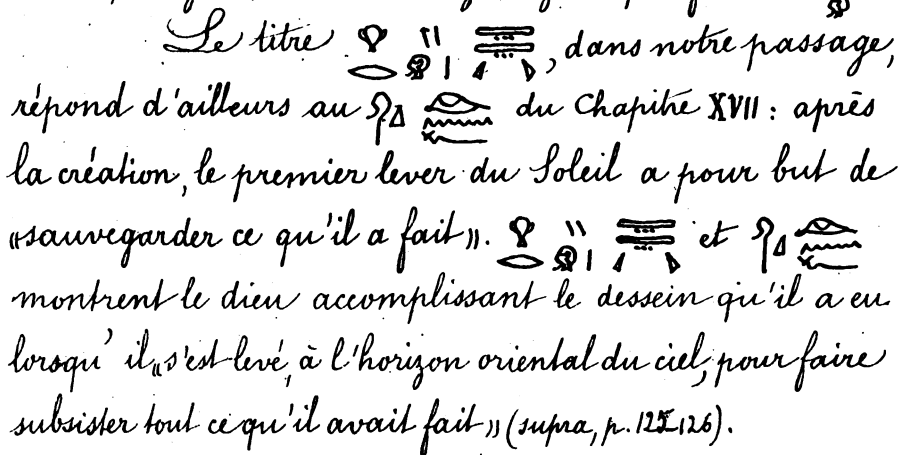 Le titre 𓄂 𓂋 𓏭 𓁷 𓏤 𓇾 𓇾, dans notre passage,
répond d'ailleurs au 𓋾 𓈎 𓈖 du Chapitre XVII : après
la création, le premier lever du Soleil a pour but de
«sauvegarder ce qu'il a fait». et
montrent le dieu accomplissant le dessein qu'il a eu
lorsqu'il «s'est levé, à l'horizon oriental du ciel, pour faire
subsister tout ce qu'il avait fait» (supra, p. 125-126).